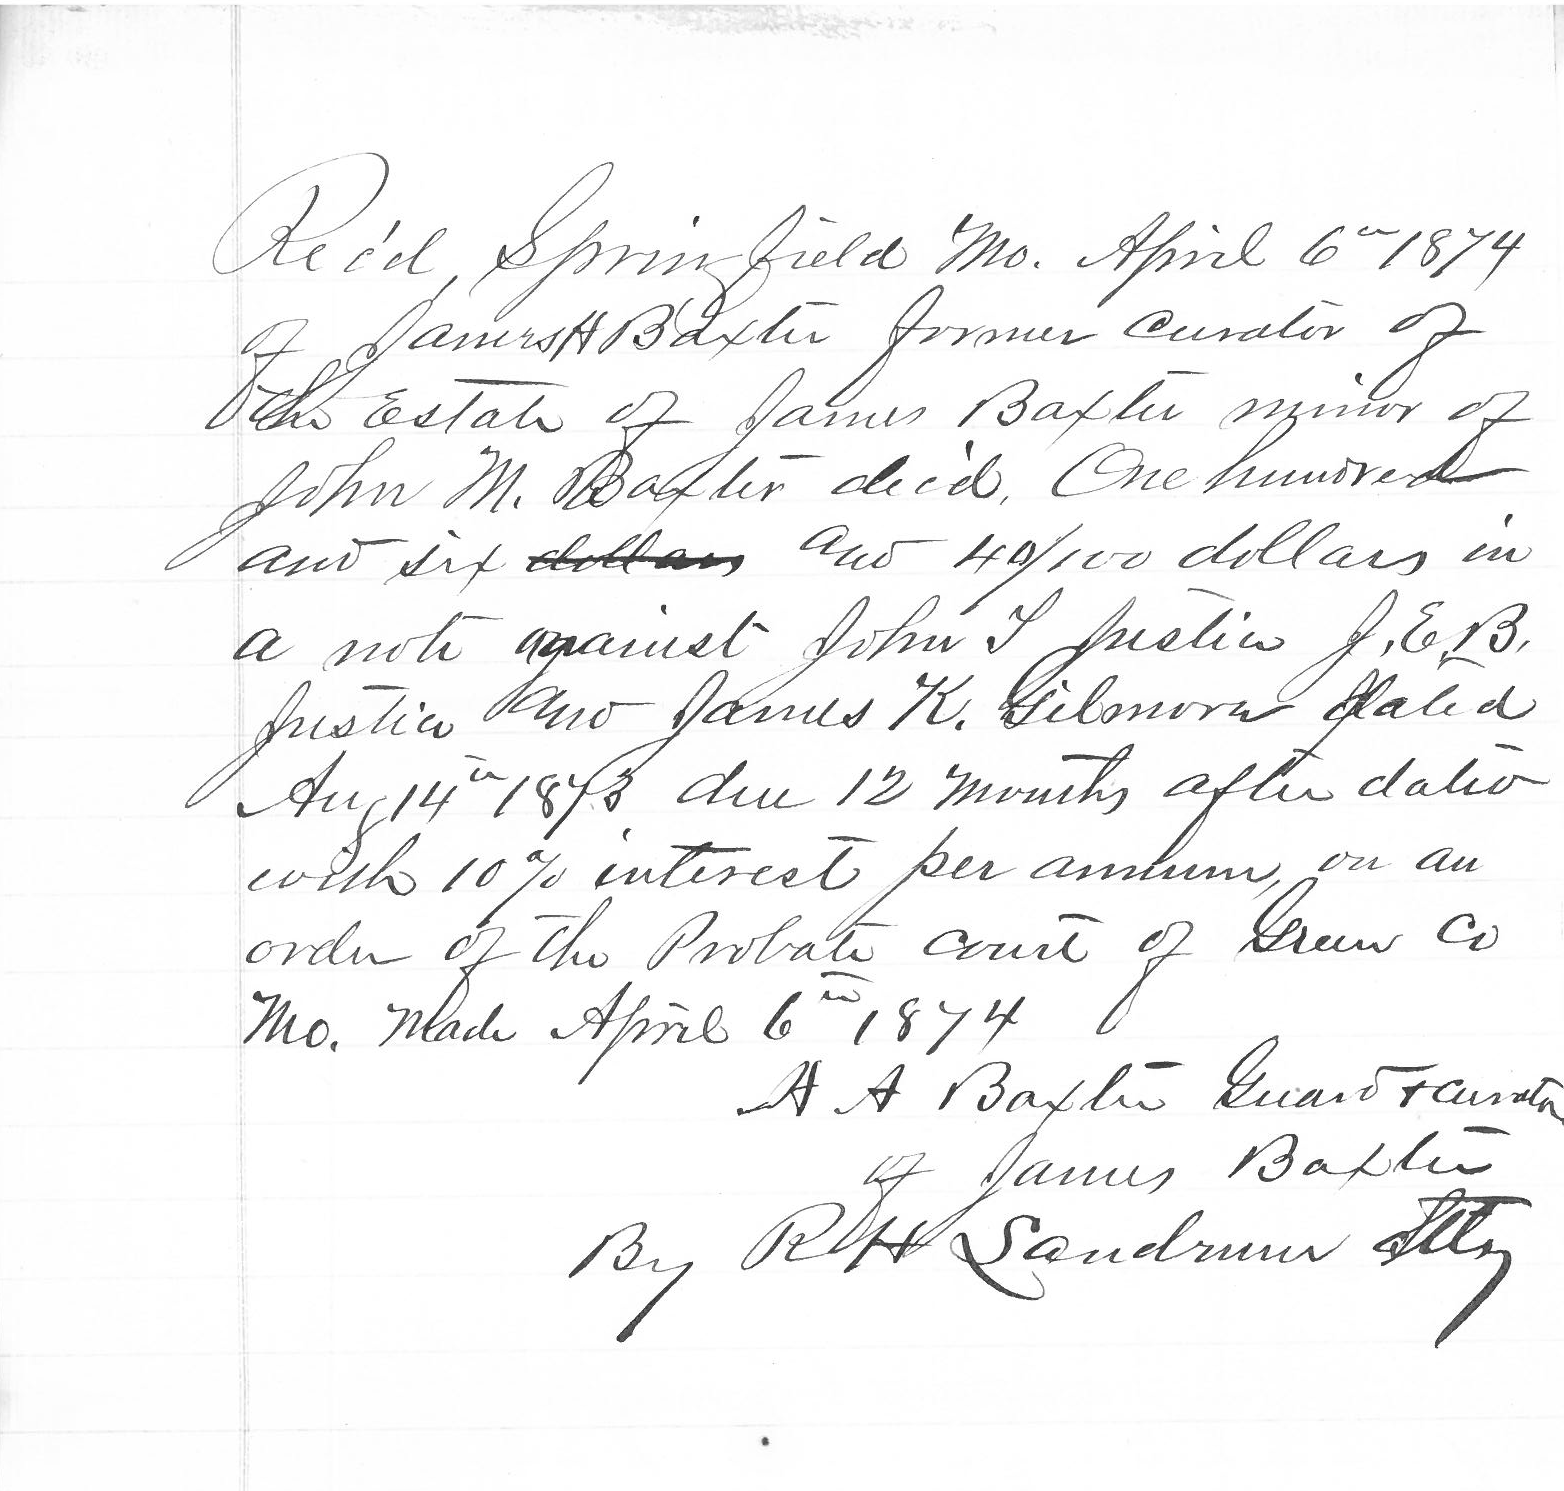 Rec'd, Springfield Mo. April 6th 1874
of James H Baxter former curator of
the Estate of James Baxter minor of
John M. Baxter dec'd, One hundred
and six dollars and 40/100 dollars in
a note against John T Justice J. E. B.
Justice and James K. Gilmore dated
Aug 14th 1873 due 12 Months after date
with 10% interest per annum, on an
order of the Probate court of Green Co
Mo. Made April 6th 1874
H A Baxter Guard & curator
of James Baxter
By R H Landrum Atty